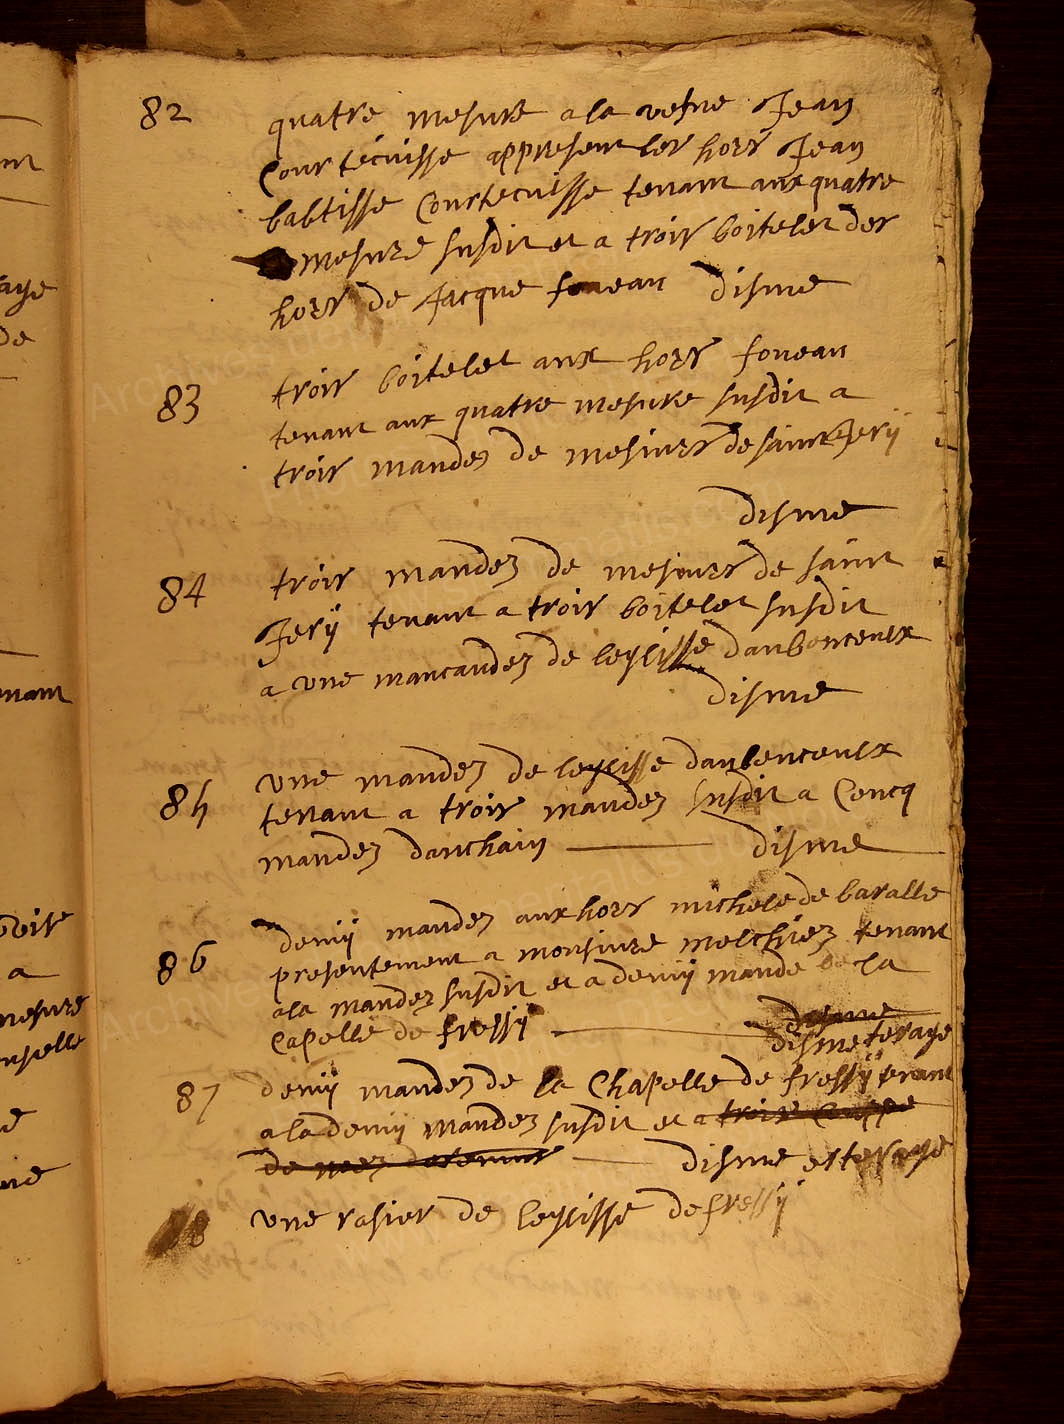 82 quatre mesure a la vefve Jean
Courtecuisse appresent les hoirs Jean
babtisse Courtecuisse tenant aux quatre
mesure susdit et a trois boitelet des
hoirs de Jacque foveau disme
83 trois boitelet aux hoirs foveau
tenant aux quatre mesure susdit a
troir mandez de mesiurs de saint Jerij
disme
84 troir mandez de mesiurs de saint
Jerij tenant a troir boitelet susdit
a une mancaudez de leglisse daubenceulx
disme
85 une mandez de leglisse daubenceulx
tenant a troir mandez susdit a Cencq
mandez danchain disme
86 demij mandez aux hoirs michele de baralle
presentement a monsiure melchiez tenant
a la mandez susdit et a demij mande de la
Capelle de fressij disme
disme teraye
87 demij mandez de la Chapelle de fressij tenant
a la demij mandez susdit et a troir Couppe
de disme et teraye
88 une rasier de leglisse de fressij
mesure
a
de